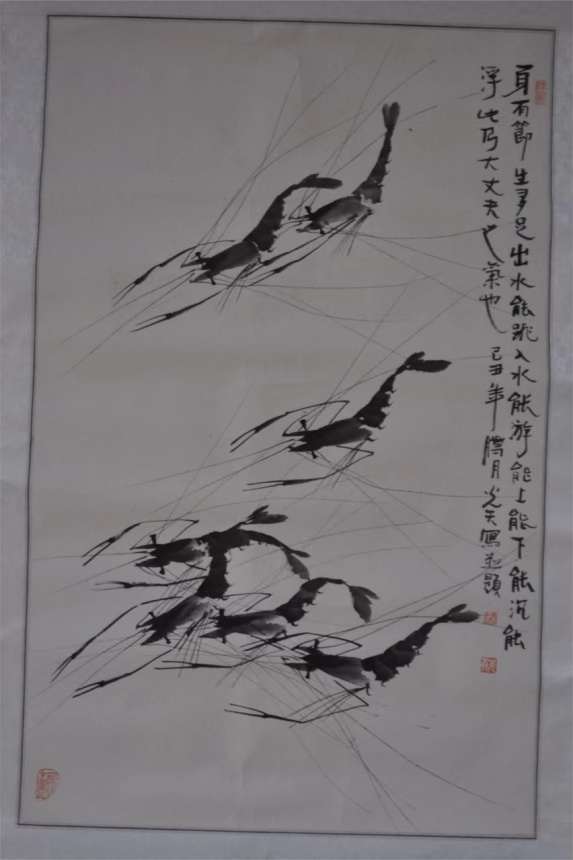 身有節生多足出水能跳入水能游能上能下能沉能
浮此乃大丈夫之氣也 己丑年臘月光天寫並題